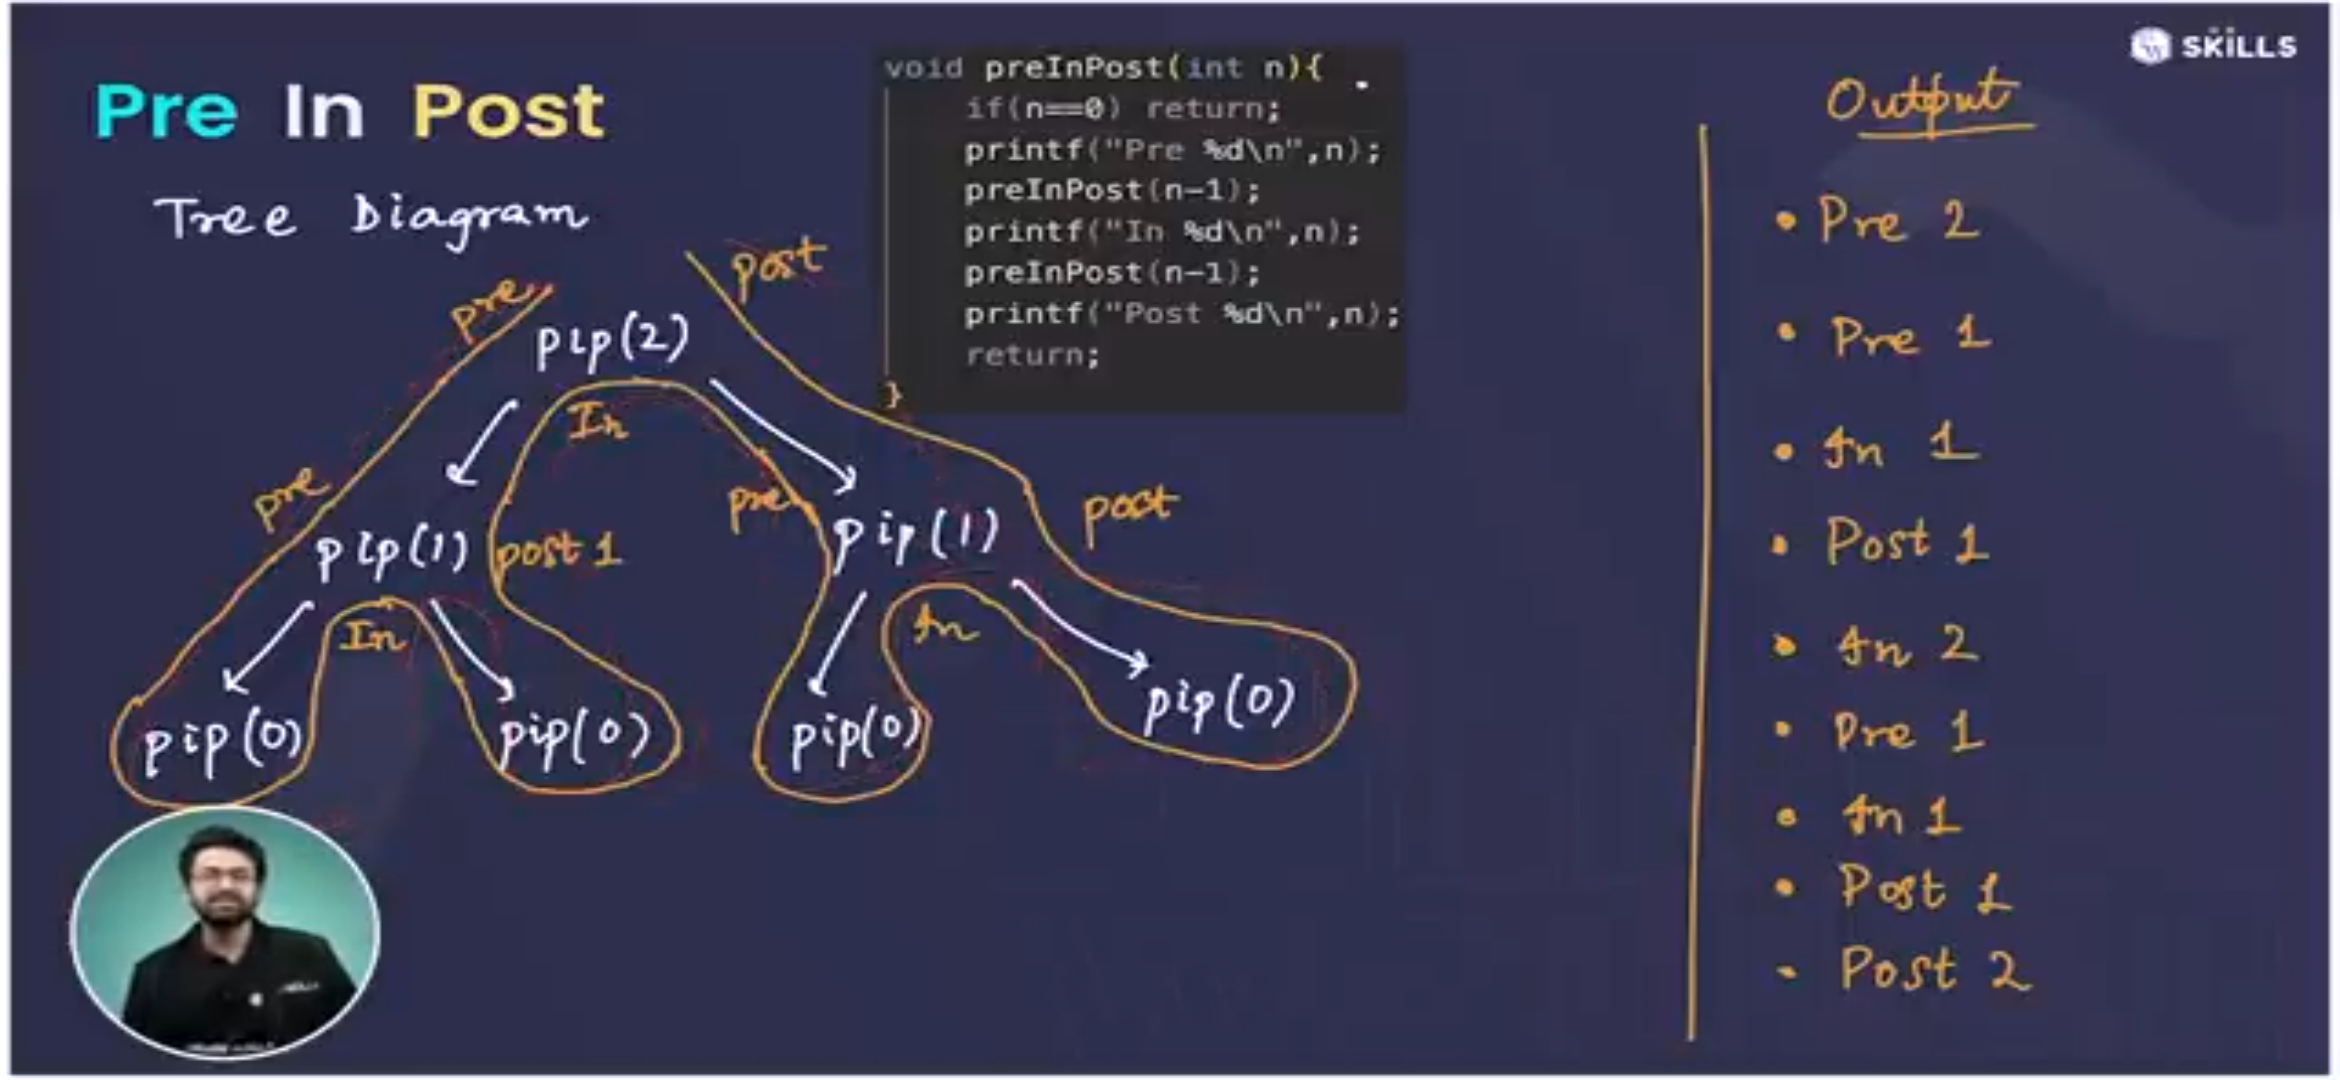 SKILLS
Pre In Post
Tree Diagram
void preInPost(int n){
if(n==0) return;
printf("Pre %d\n",n);
preInPost(n-1);
printf("In %d\n",n);
preInPost(n-1);
printf("Post %d\n",n);
return;
}
pre
post
pip(2)
In
pre
pre
post
pip(1)
post 1
pip(1)
In
In
pip(0)
pip(0)
pip(0)
pip(0)
Output
• Pre 2
• Pre 1
• In 1
• Post 1
• In 2
• Pre 1
• In 1
• Post 1
- Post 2